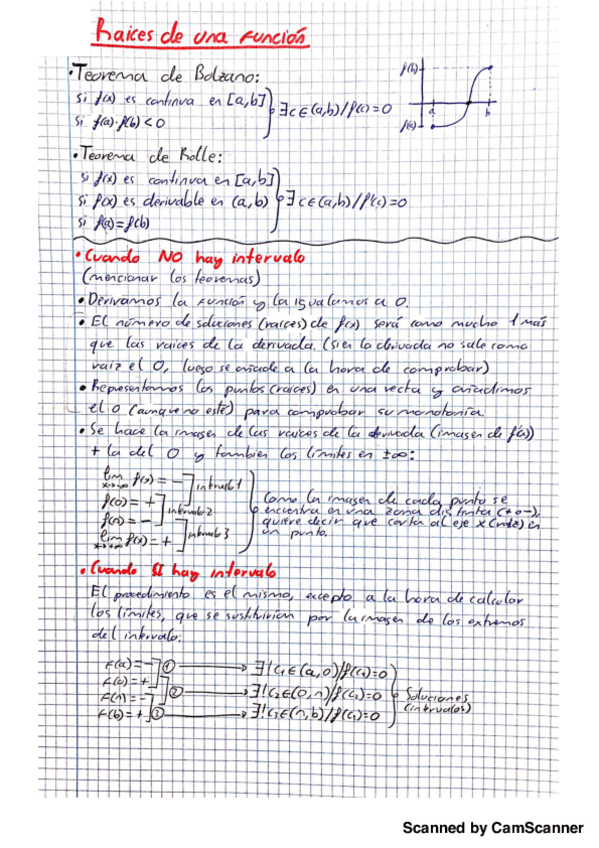 Raices de una función
• Teorema de Bolzano:
si f(x) es continua en [a,b]
si f(a)·f(b)<0
∃c∈(a,b)/f(c)=0
f(b)
f(a)
a
b
• Teorema de Rolle:
si f(x) es continua en [a,b]
si f(x) es derivable en (a,b)
si f(a)=f(b)
∃c∈(a,b)/f'(c)=0
• Cuando NO hay intervalo
(mencionar los teoremas)
• Derivamos la función y la igualamos a 0.
• El número de soluciones (raices) de f(x) será como mucho 1 más
que las raices de la derivada. (si en la derivada no sale como
raiz el 0, luego se añade a la hora de comprobar)
• Representamos los puntos (raices) en una recta y añadimos
el 0 (aunque no esté) para comprobar su monotonía.
• Se hace la imagen de las raices de la derivada (imagen de f(x))
+ la del 0 y tambien los límites en ±∞:
lim f(x) = -
f(0) = +
f(n) = -
lim f(x) = +
intervalo 1
intervalo 2
intervalo 3
Como la imagen de cada punto se
encuentra en una zona distinta (+ o -),
quiere decir que corta al eje x (raiz) en
un punto.
• Cuando SI hay intervalo
El procedimiento es el mismo, excepto a la hora de calcular
los límites, que se sustituirían por la imagen de los extremos
del intervalo:
F(a) = - ① ∃!c₁∈(a,0)/f(c₁)=0
F(0) = +
F(n) = - ② ∃!c₂∈(0,n)/f(c₂)=0
F(b) = + ③ ∃!c₃∈(n,b)/f(c₃)=0
Soluciones
(intervalos)
Scanned by CamScanner